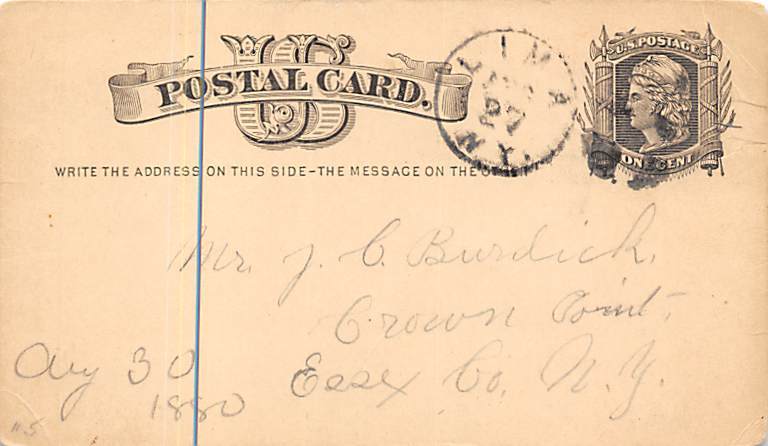 US
POSTAL CARD.
U.S. POSTAGE
ONE CENT
LIMA
N.Y.
WRITE THE ADDRESS ON THIS SIDE-THE MESSAGE ON THE
Mr. J. C. Burdick.
Crown Point.
Essex Co. N.Y.
Aug 30
1880
"5